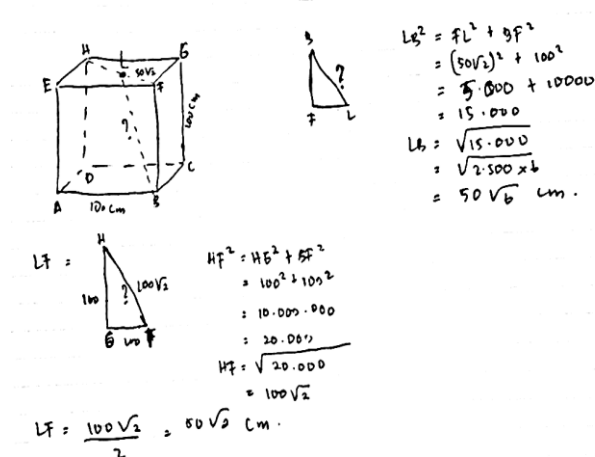 H L G
50√2
E F
?
100 cm
D C
A B
100 cm
B
?
F L
LB² = FL² + BF²
= (50√2)² + 100²
= 5.000 + 10000
= 15.000
LB = √15.000
= √2.500 x 6
= 50√6 cm.
LF =
H
100 ? 100√2
G 100 F
HF² = HG² + GF²
= 100² + 100²
= 10.000.000
= 20.000
HF = √20.000
= 100√2
LF = 100√2 / 2 = 50√2 cm.